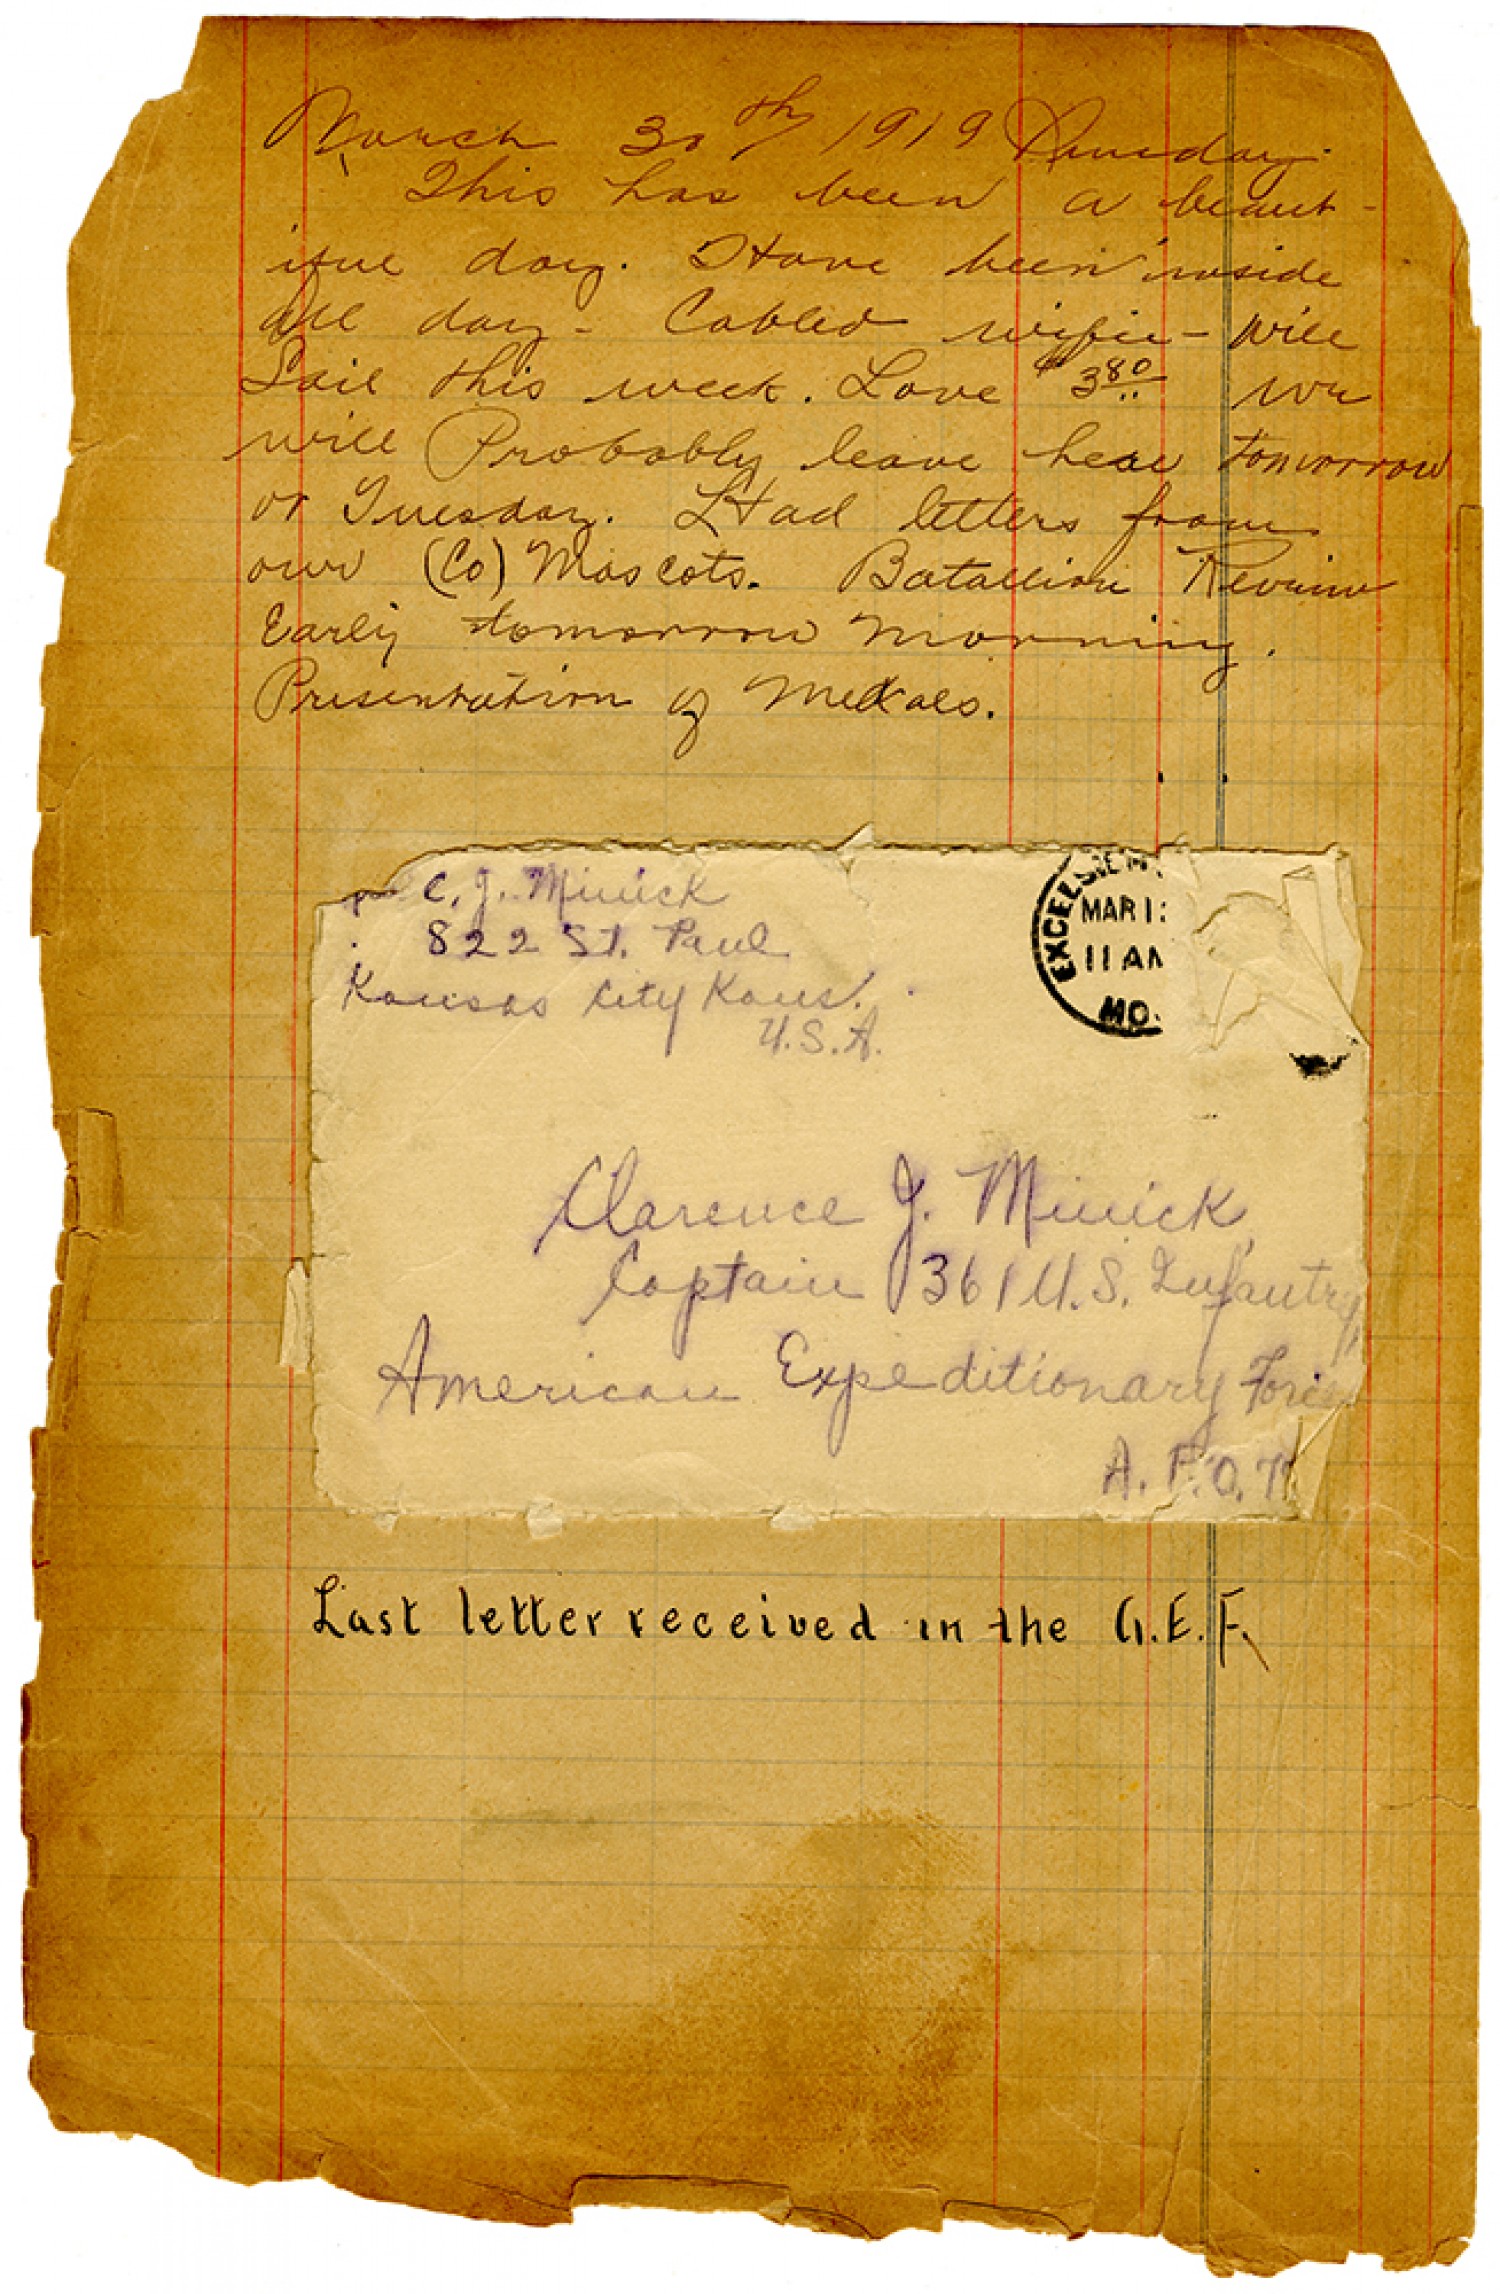 March 30th 1919 Sunday.
This has been a beaut-
iful day. Have been inside
all day - Cabled wifie - will
Sail this week. Love $3.80 we
will Probably leave hear tomorrow
or Tuesday. Had letters from
our (Co) Mascots. Batallion Review
Early tomorrow morning.
Presentation of Medals.
C. J. Minick
822 St. Paul
Kansas City Kans.
U.S.A.
EXCELSIOR
MAR 1
11 AM
MO.
Clarence J. Minick
Captain 361 U.S. Infantry,
American Expeditionary Forces
A.P.O. 7
Last letter received in the A.E.F.